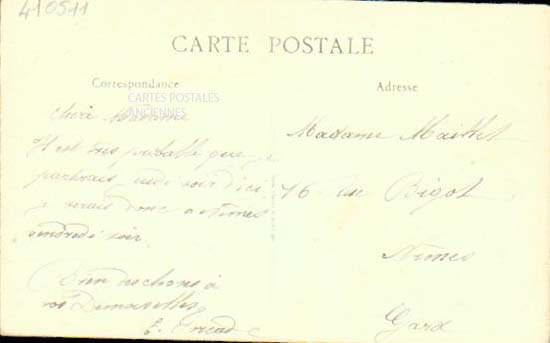 410511
CARTE POSTALE
Correspondance
Adresse
CARTES POSTALES
ANCIENNES
Chère Madame
Il est très probable que je
partirais jeudi soir d'ici
je serais donc a Nimes
vendredi soir.
Bien des choses à
vos Demoiselles
Madame Maillet
16 rue Bigot
Nimes
Gard